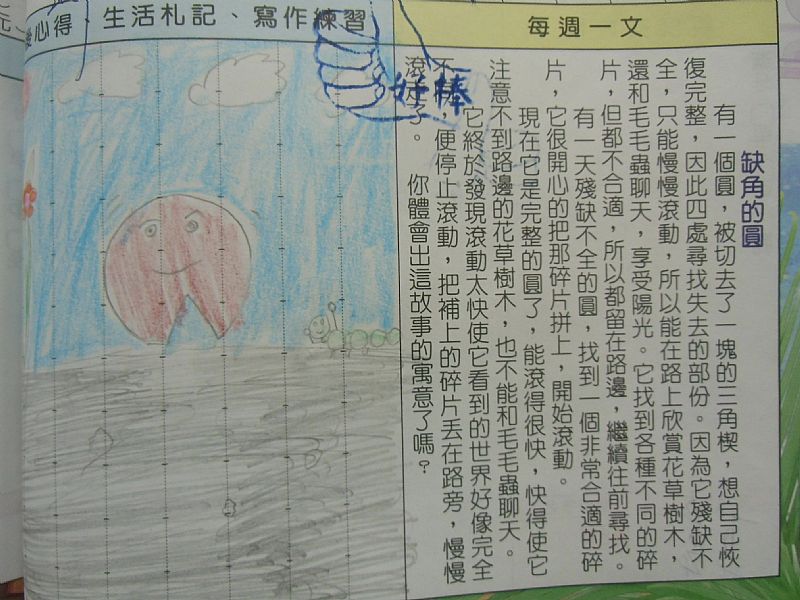 心得
生活札記、寫作練習
每週一文
好棒
缺角的圓
有一個圓，被切去了一塊的三角楔，想自己恢
復完整，因此四處尋找失去的部份。因為它殘缺不
全，只能慢慢滾動，所以能在路上欣賞花草樹木，
還和毛毛蟲聊天，享受陽光。它找到各種不同的碎
片，但都不合適，所以都留在路邊，繼續往前尋找。
有一天殘缺不全的圓，找到一個非常合適的碎
片，它很開心的把那碎片拼上，開始滾動。
現在它是完整的圓了，能滾得很快，快得使它
注意不到路邊的花草樹木，也不能和毛毛蟲聊天。
它終於發現滾動太快使它看到的世界好像完全
不，便停止滾動，把補上的碎片丟在路旁，慢慢
滾了。 你體會出這故事的寓意了嗎？